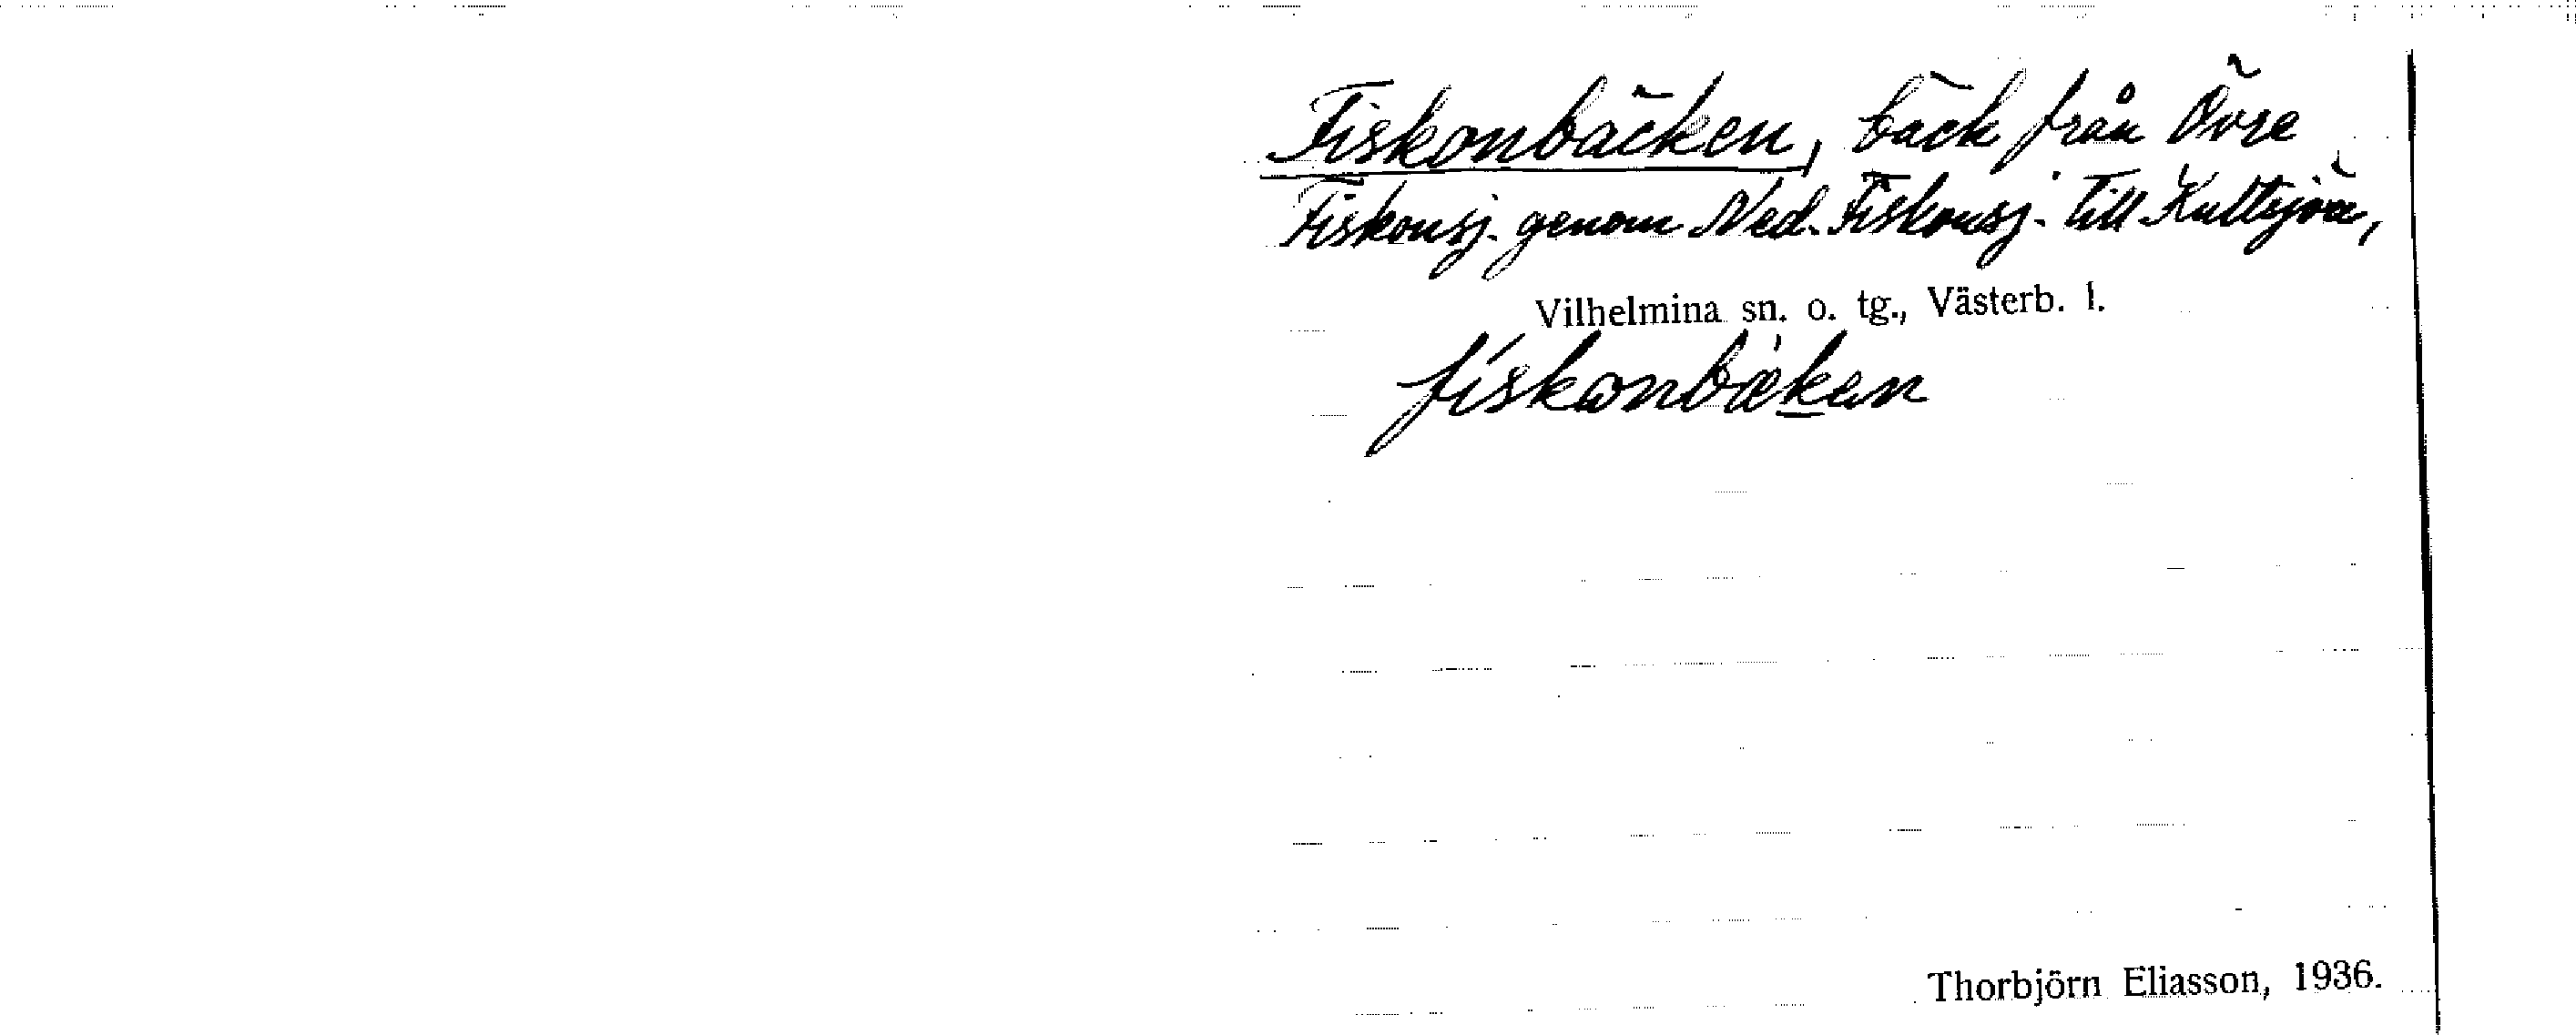 Fiskonbäcken, bäck från Övre
Fiskonsj. genom Ned. Fiskonsj. till Kultsjöå,
Vilhelmina sn. o. tg., Västerb. l.
fískonbækan
Thorbjörn Eliasson, 1936.